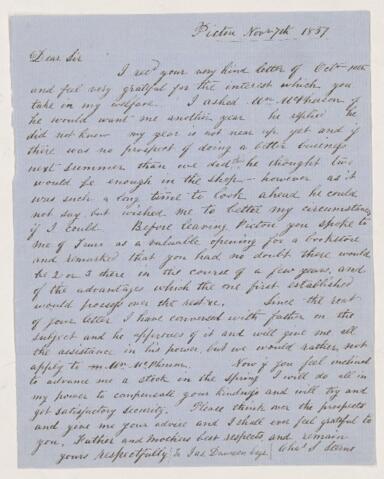 Picton Novr 7th 1857
Dear Sir
I recd your very kind letter of Octr 10th
and feel very grateful for the interest which you
take in my welfare. I asked Mr McPherson if
he would want me another year he replied he
did not know my year is not near up yet and if
there was no prospect of doing a better business
next summer than we did he thought two
would be enough in the shop - however as it
was such a long time to look ahead he could
not say but wished me to better my circumstances
if I could. Before leaving Pictou you spoke to
me of Truro as a valuable opening for a bookstore
and remarked that you had no doubt there would
be 2 or 3 there in the course of a few years, and
of the advantages which the one first established
would possess over the rest. Since the rect
of your letter I have conversed with father on the
subject and he approves of it and will give me all
the assistance in his power but we would rather not
apply to Mr. McPherson. Now if you feel inclined
to advance me a stock in the Spring I will do all in
my power to compensate your kindness and will try and
get satisfactory security. Please think over the prospects
and give me your advice and I shall ever feel grateful to
you. Father and Mothers best respects, and remain
yours respectfully To Jas Dawson Esqr Chas S